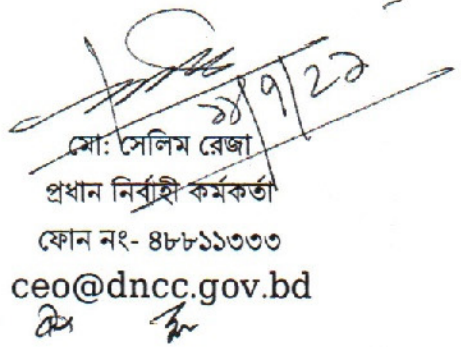 মো: সেলিম রেজা
প্রধান নির্বাহী কর্মকর্তা
ফোন নং- ৪৮৮১১৩৩৩
ceo@dncc.gov.bd